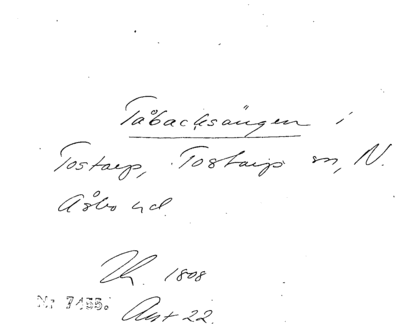 Tåbacksängen i
Tostarp, Tostarps sn, N.
Åsbo hd.
1808
Nr 7455. Akt 22.